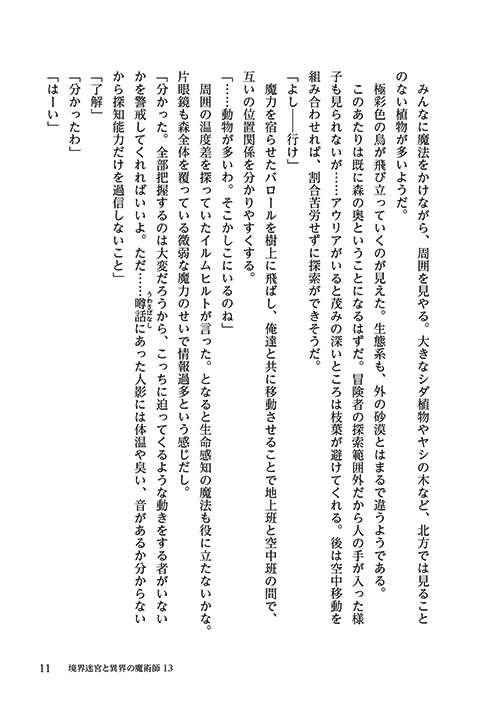 みんなに魔法をかけながら、周囲を見やる。大きなシダ植物やヤシの木など、北方では見ること
のない植物が多いようだ。
　極彩色の鳥が飛び立っていくのが見えた。生態系も、外の砂漠とはまるで違うようである。
　このあたりは既に森の奥ということになるはずだ。冒険者の探索範囲外だから人の手が入った様
子も見られないが……アウリアがいると茂みの深いところは枝葉が避けてくれる。後は空中移動を
組み合わせれば、割合苦労せずに探索ができそうだ。
「よし――行け」
　魔力を宿らせたバロールを樹上に飛ばし、俺達と共に移動させることで地上班と空中班の間で、
互いの位置関係を分かりやすくする。
「……動物が多いわ。そこかしこにいるのね」
　周囲の温度差を探っていたイルムヒルトが言った。となると生命感知の魔法も役に立たないかな。
片眼鏡も森全体を覆っている微弱な魔力のせいで情報過多という感じだし。
「分かった。全部把握するのは大変だろうから、こっちに迫ってくるような動きをする者がいない
かを警戒してくれればいいよ。ただ……噂話にあった人影には体温や臭い、音があるか分からない
うわさばなし
から探知能力だけを過信しないこと」
「了解」
「分かったわ」
「はーい」
11　境界迷宮と異界の魔術師 13